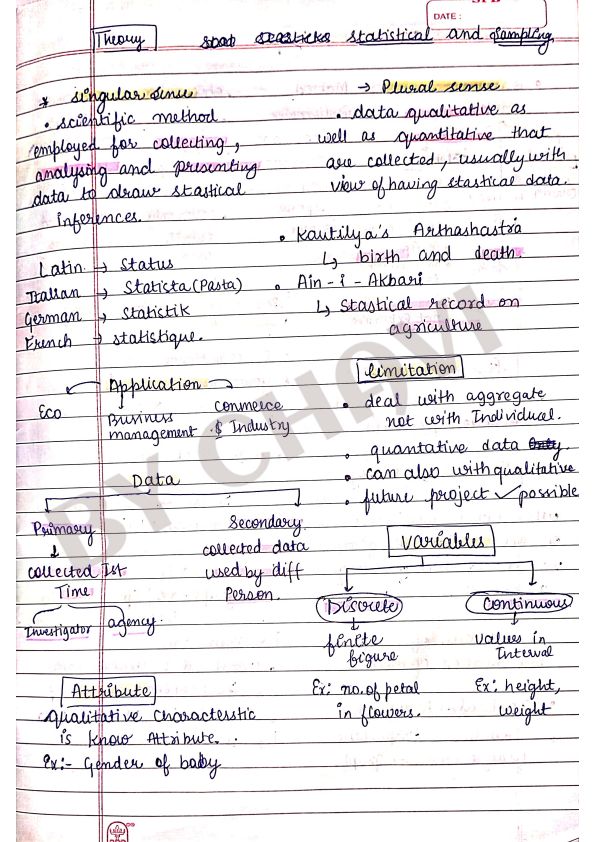 DATE :
Theory statistical and Sampling
* Singular sense
• scientific method
employed for collecting,
analysing and presenting
data to draw stastical
inferences.
→ Plural sense
• data qualitative as
well as quantitative that
are collected, usually with
view of having stastical data.
Latin → Status
Italian → Statista (Pasta)
German → Statistik
French → statistique.
• Kautilya's Arthashastra
↳ birth and death.
• Ain-i-Akbari
↳ Stastical record on
agriculture
Application
Eco
Business
management
Commerce
& Industry
limitation
• deal with aggregate
not with Individual.
• quantative data
• can also with qualitative
• future project ✓ possible
Data
Primary
↓
collected Ist
Time
Investigator agency
Secondary
collected data
used by diff
Person.
Variables
Discrete
↓
finite
figure
Ex: no. of petal
in flowers.
Continuous
↓
values in
Interval
Ex: height,
weight
Attribute
Qualitative characterstic
is know Attribute.
Ex:- Gender of baby
BY CHAVI